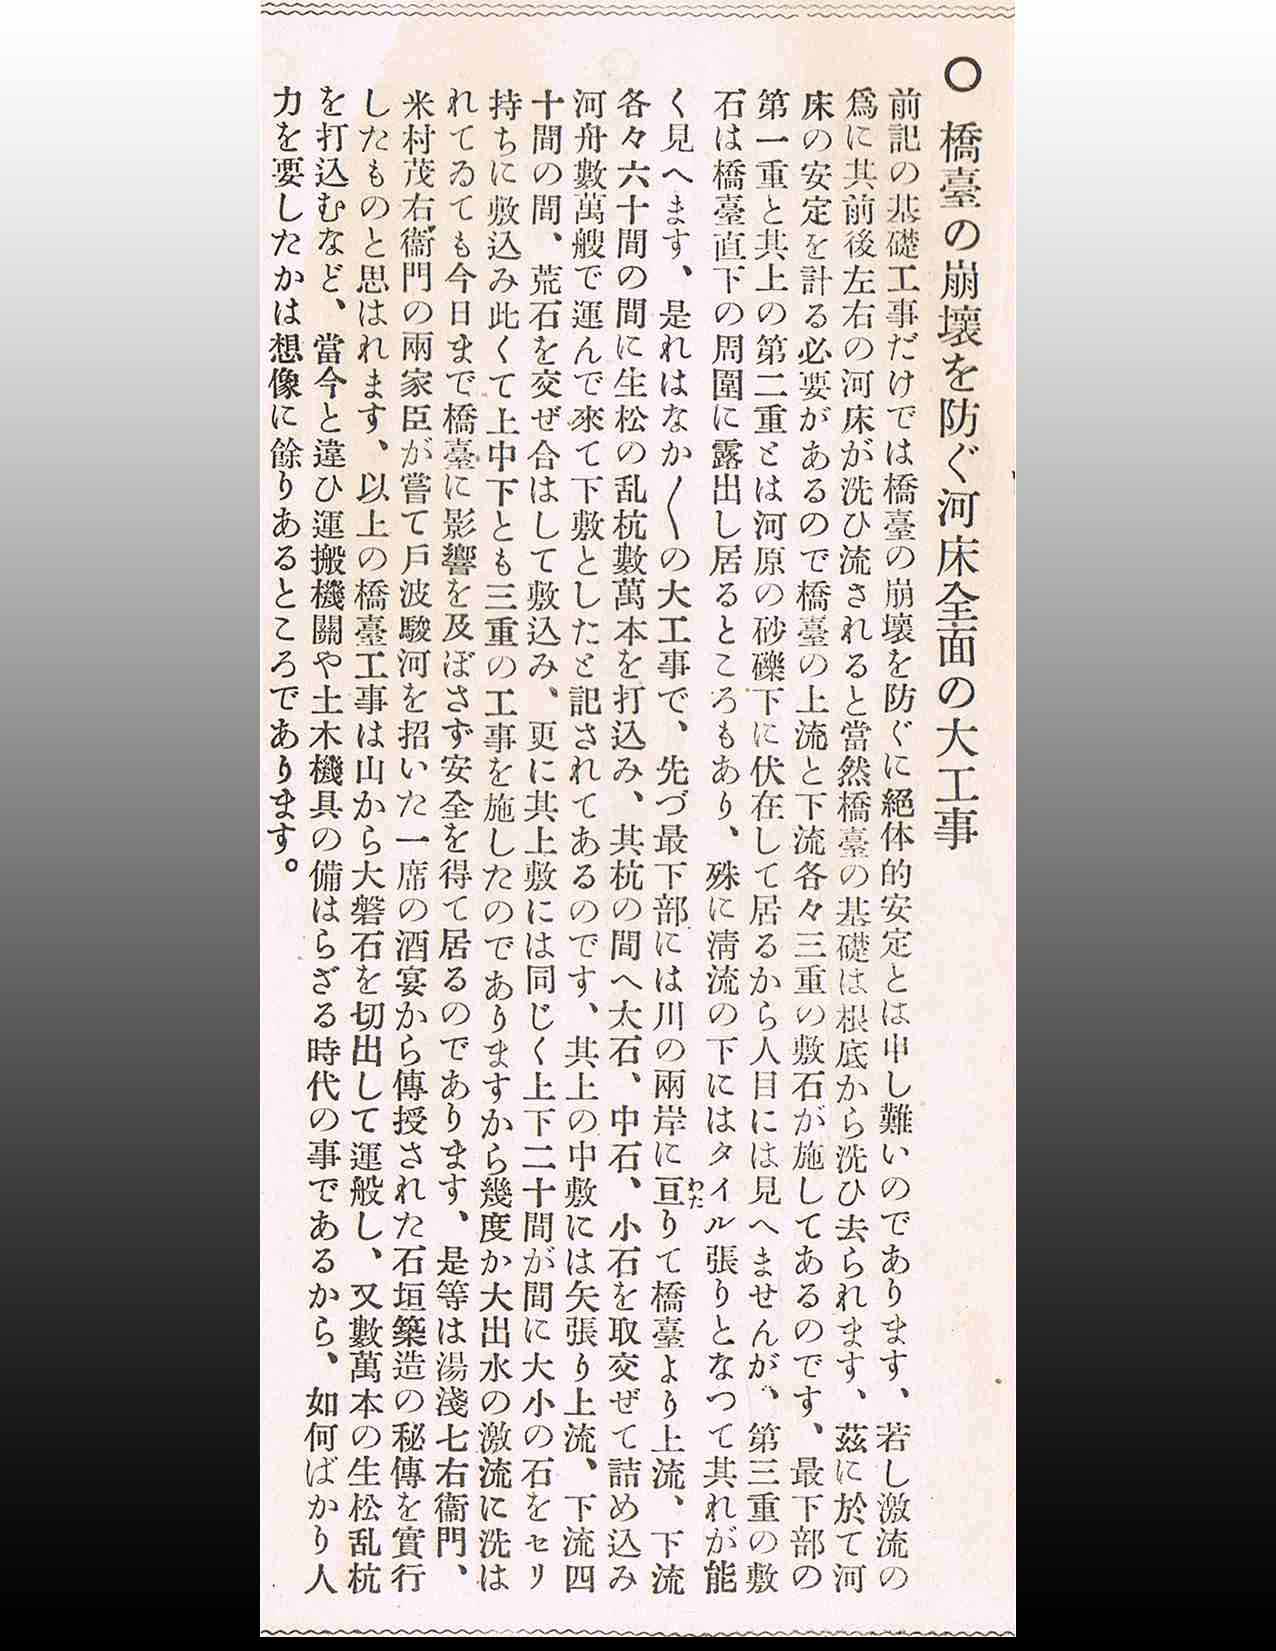 ○ 橋臺の崩壊を防ぐ河床全面の大工事
前記の基礎工事だけでは橋臺の崩壊を防ぐに絕体的安定とは申し難いのであります、若し激流の
爲に其前後左右の河床が洗ひ流されると當然橋臺の基礎は根底から洗ひ去られます、茲に於て河
床の安定を計る必要があるので橋臺の上流と下流各々三重の敷石が施してあるのです、最下部の
第一重と其上の第二重とは河原の砂礫下に伏在して居るから人目には見へませんが、第三重の敷
石は橋臺直下の周圍に露出し居るところもあり、殊に淸流の下にはタイル張りとなつて其れが能
く見へます、是れはなか〱の大工事で、先づ最下部には川の兩岸に亘りて橋臺より上流、下流
わた
各々六十間の間に生松の乱杭數萬本を打込み、其杭の間へ大石、中石、小石を取交ぜて詰め込み
河舟數萬艘で運んで來て下敷としたと記されてあるのです、其上の中敷には矢張り上流、下流四
十間の間、荒石を交ぜ合はして敷込み、更に其上敷には同じく上下二十間が間に大小の石をセリ
持ちに敷込み此くて上中下とも三重の工事を施したのでありますから幾度か大出水の激流に洗は
れてゐても今日まで橋臺に影響を及ぼさず安全を得て居るのであります、是等は湯淺七右衞門、
米村茂右衞門の兩家臣が嘗て戶波駿河を招いた一席の酒宴から傳授された石垣築造の秘傳を實行
したものと思はれます、以上の橋臺工事は山から大磐石を切出して運般し、又數萬本の生松乱杭
を打込むなど、當今と違ひ運搬機關や土木機具の備はらざる時代の事であるから、如何ばかり人
力を要したかは想像に餘りあるところであります。